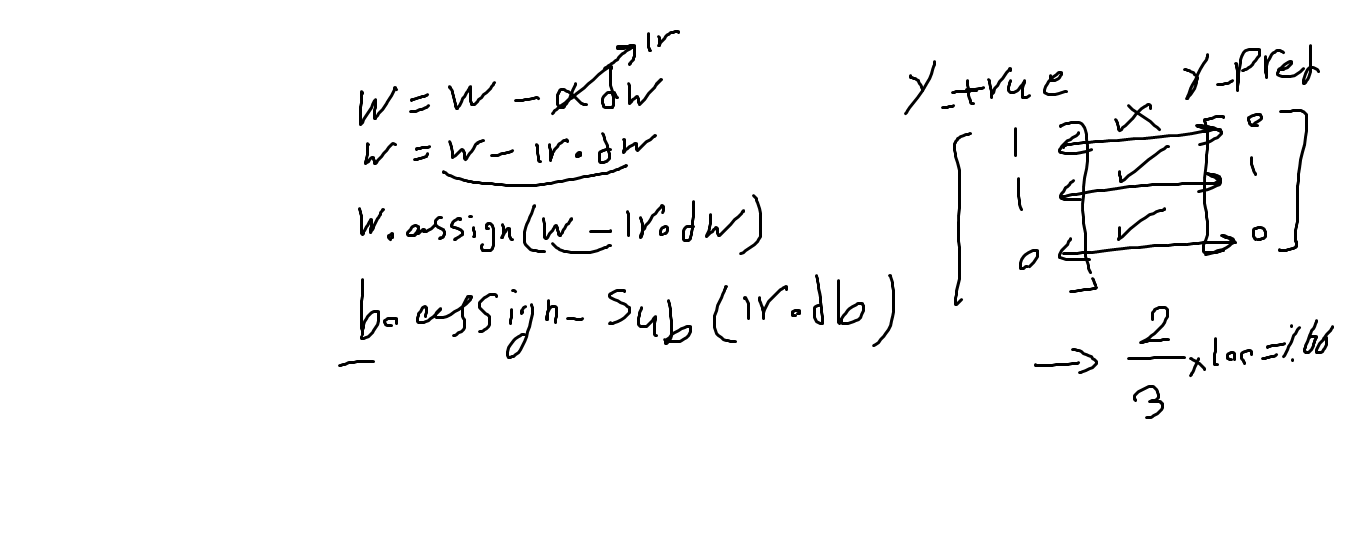 lr
w = w - α dw
w = w - lr. dw
w. assign(w - lr. dw)
b. assign- Sub(lr. db)
y_true y_pred
1 0
1 1
0 0
→ 2/3 x 100 = %66